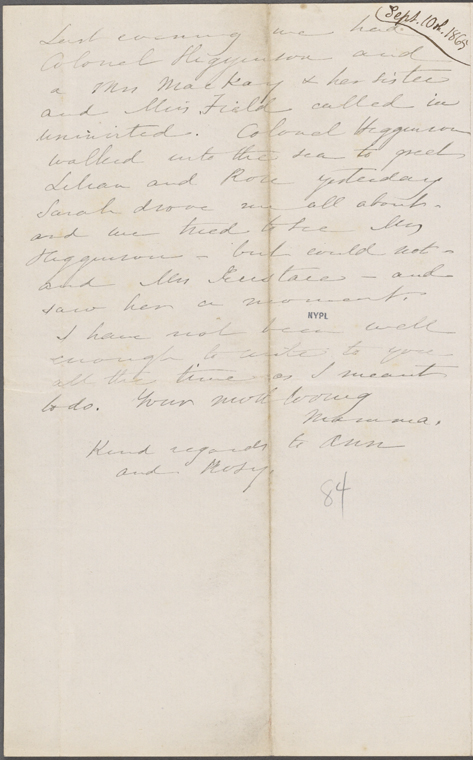 (Sept. 10th. 1865
Last evening we had
Colonel Higginson and
a Mrs MacKay & her sister
and Miss Field called in
uninvited. Colonel Higginson
walked into the sea to greet
Lilian and Rose yesterday
Sarah drove me all about -
and we tried to see Mrs
Higginson - but could not -
and Mrs Eustace - and
saw her a moment.
NYPL
I have not been well
enough to write to you
all the time as I meant
to do. Your most loving
Mamma.
Kind regards to Ann
and Rosy.
84